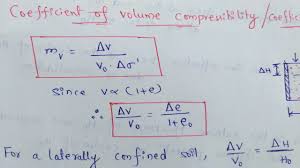 Coefficient of volume compressibility/coeffic
m_v = Δv / V₀·Δσ'
Since V ∝ (1+e)
∴ Δv/V₀ = Δe/1+e₀
ΔH
For a laterally confined soil, Δv/V₀ = ΔH/H₀